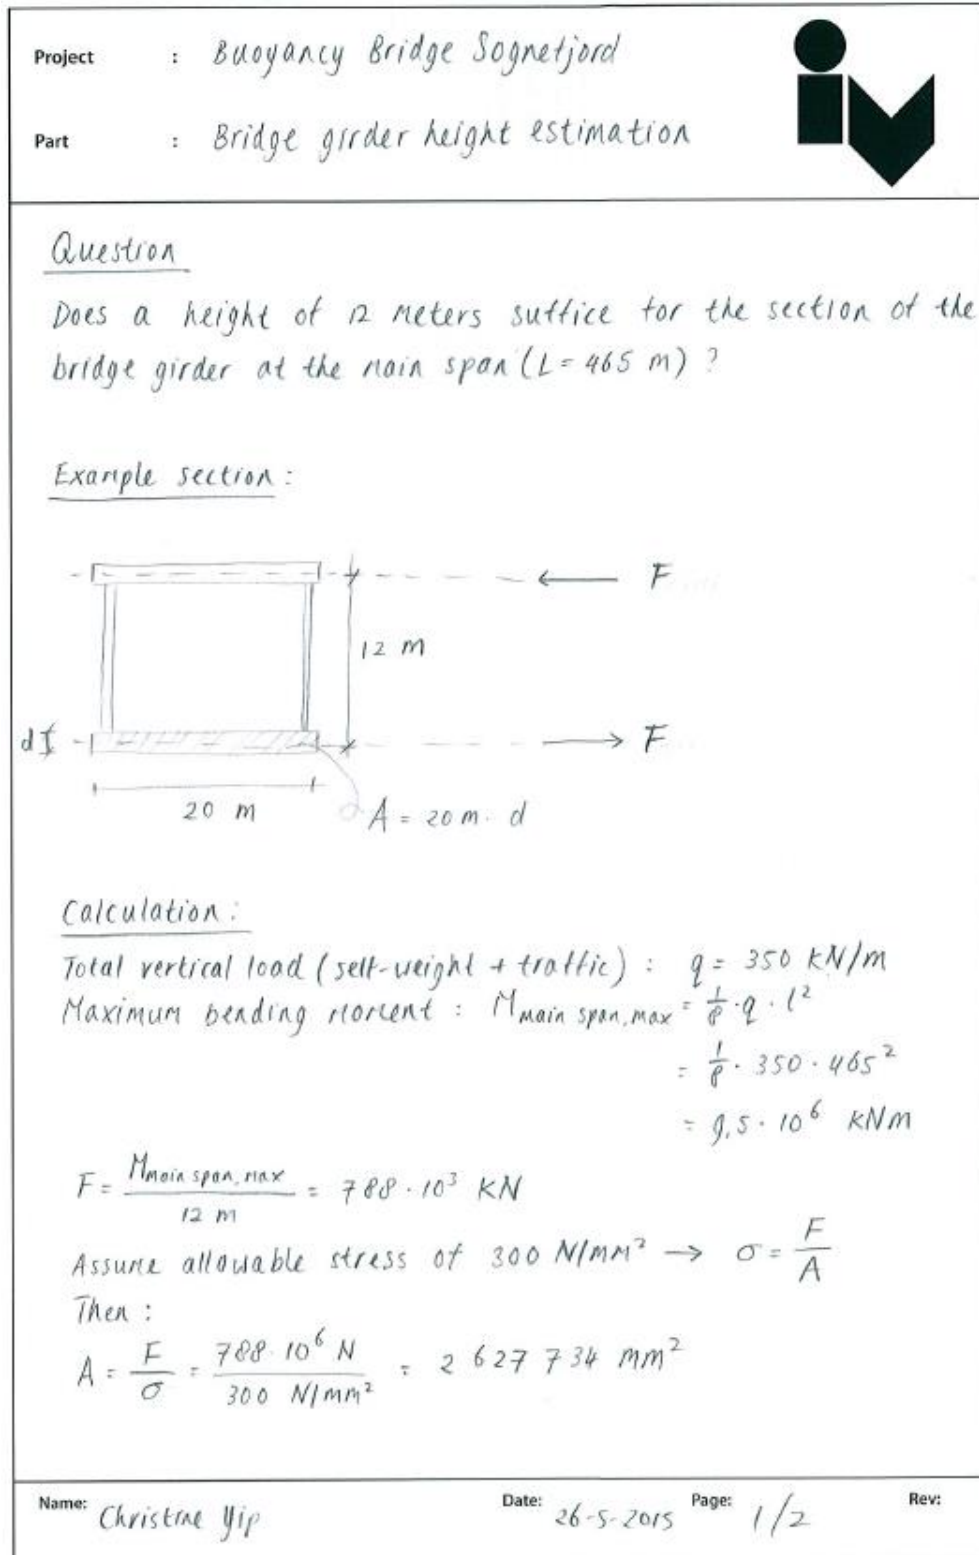 Project : Buoyancy Bridge Sognefjord
Part : Bridge girder height estimation
iv
Question
Does a height of 12 meters suffice for the section of the
bridge girder at the main span (L = 465 m) ?
Example section :
F
12 m
d
F
20 m
A = 20 m · d
Calculation :
Total vertical load (self-weight + traffic) : q = 350 kN/m
Maximum bending moment : M main span, max = 1/8 · q · l²
= 1/8 · 350 · 465²
= 9,5 · 10⁶ kNm
F = M main span, max / 12 m = 788 · 10³ KN
Assume allowable stress of 300 N/mm² → σ = F/A
Then :
A = F/σ = 788 · 10⁶ N / 300 N/mm² = 2 627 734 mm²
Name: Christine Yip Date: 26-5-2015 Page: 1/2 Rev: